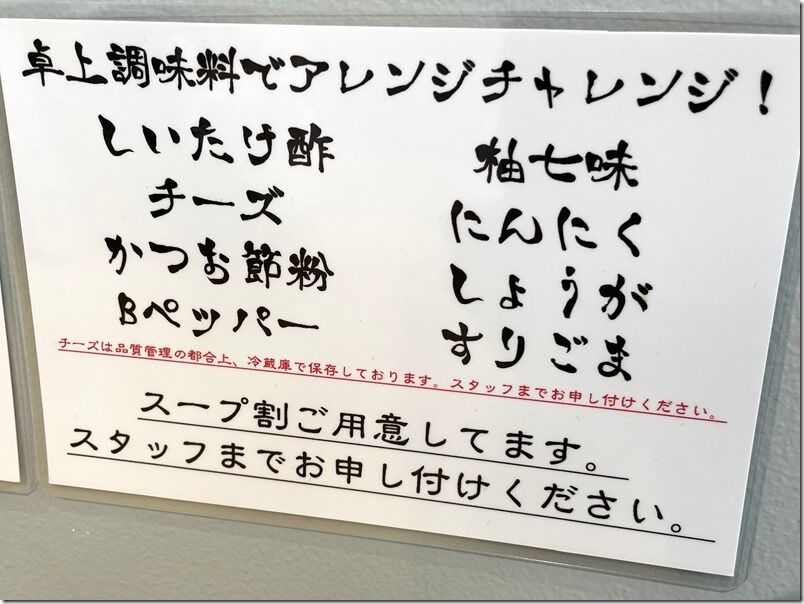 卓上調味料でアレンジチャレンジ！
しいたけ酢
柚七味
チーズ
にんにく
かつお節粉
しょうが
Bペッパー
すりごま
チーズは品質管理の都合上、冷蔵庫で保存しております。スタッフまでお申し付けください。
スープ割ご用意してます。
スタッフまでお申し付けください。